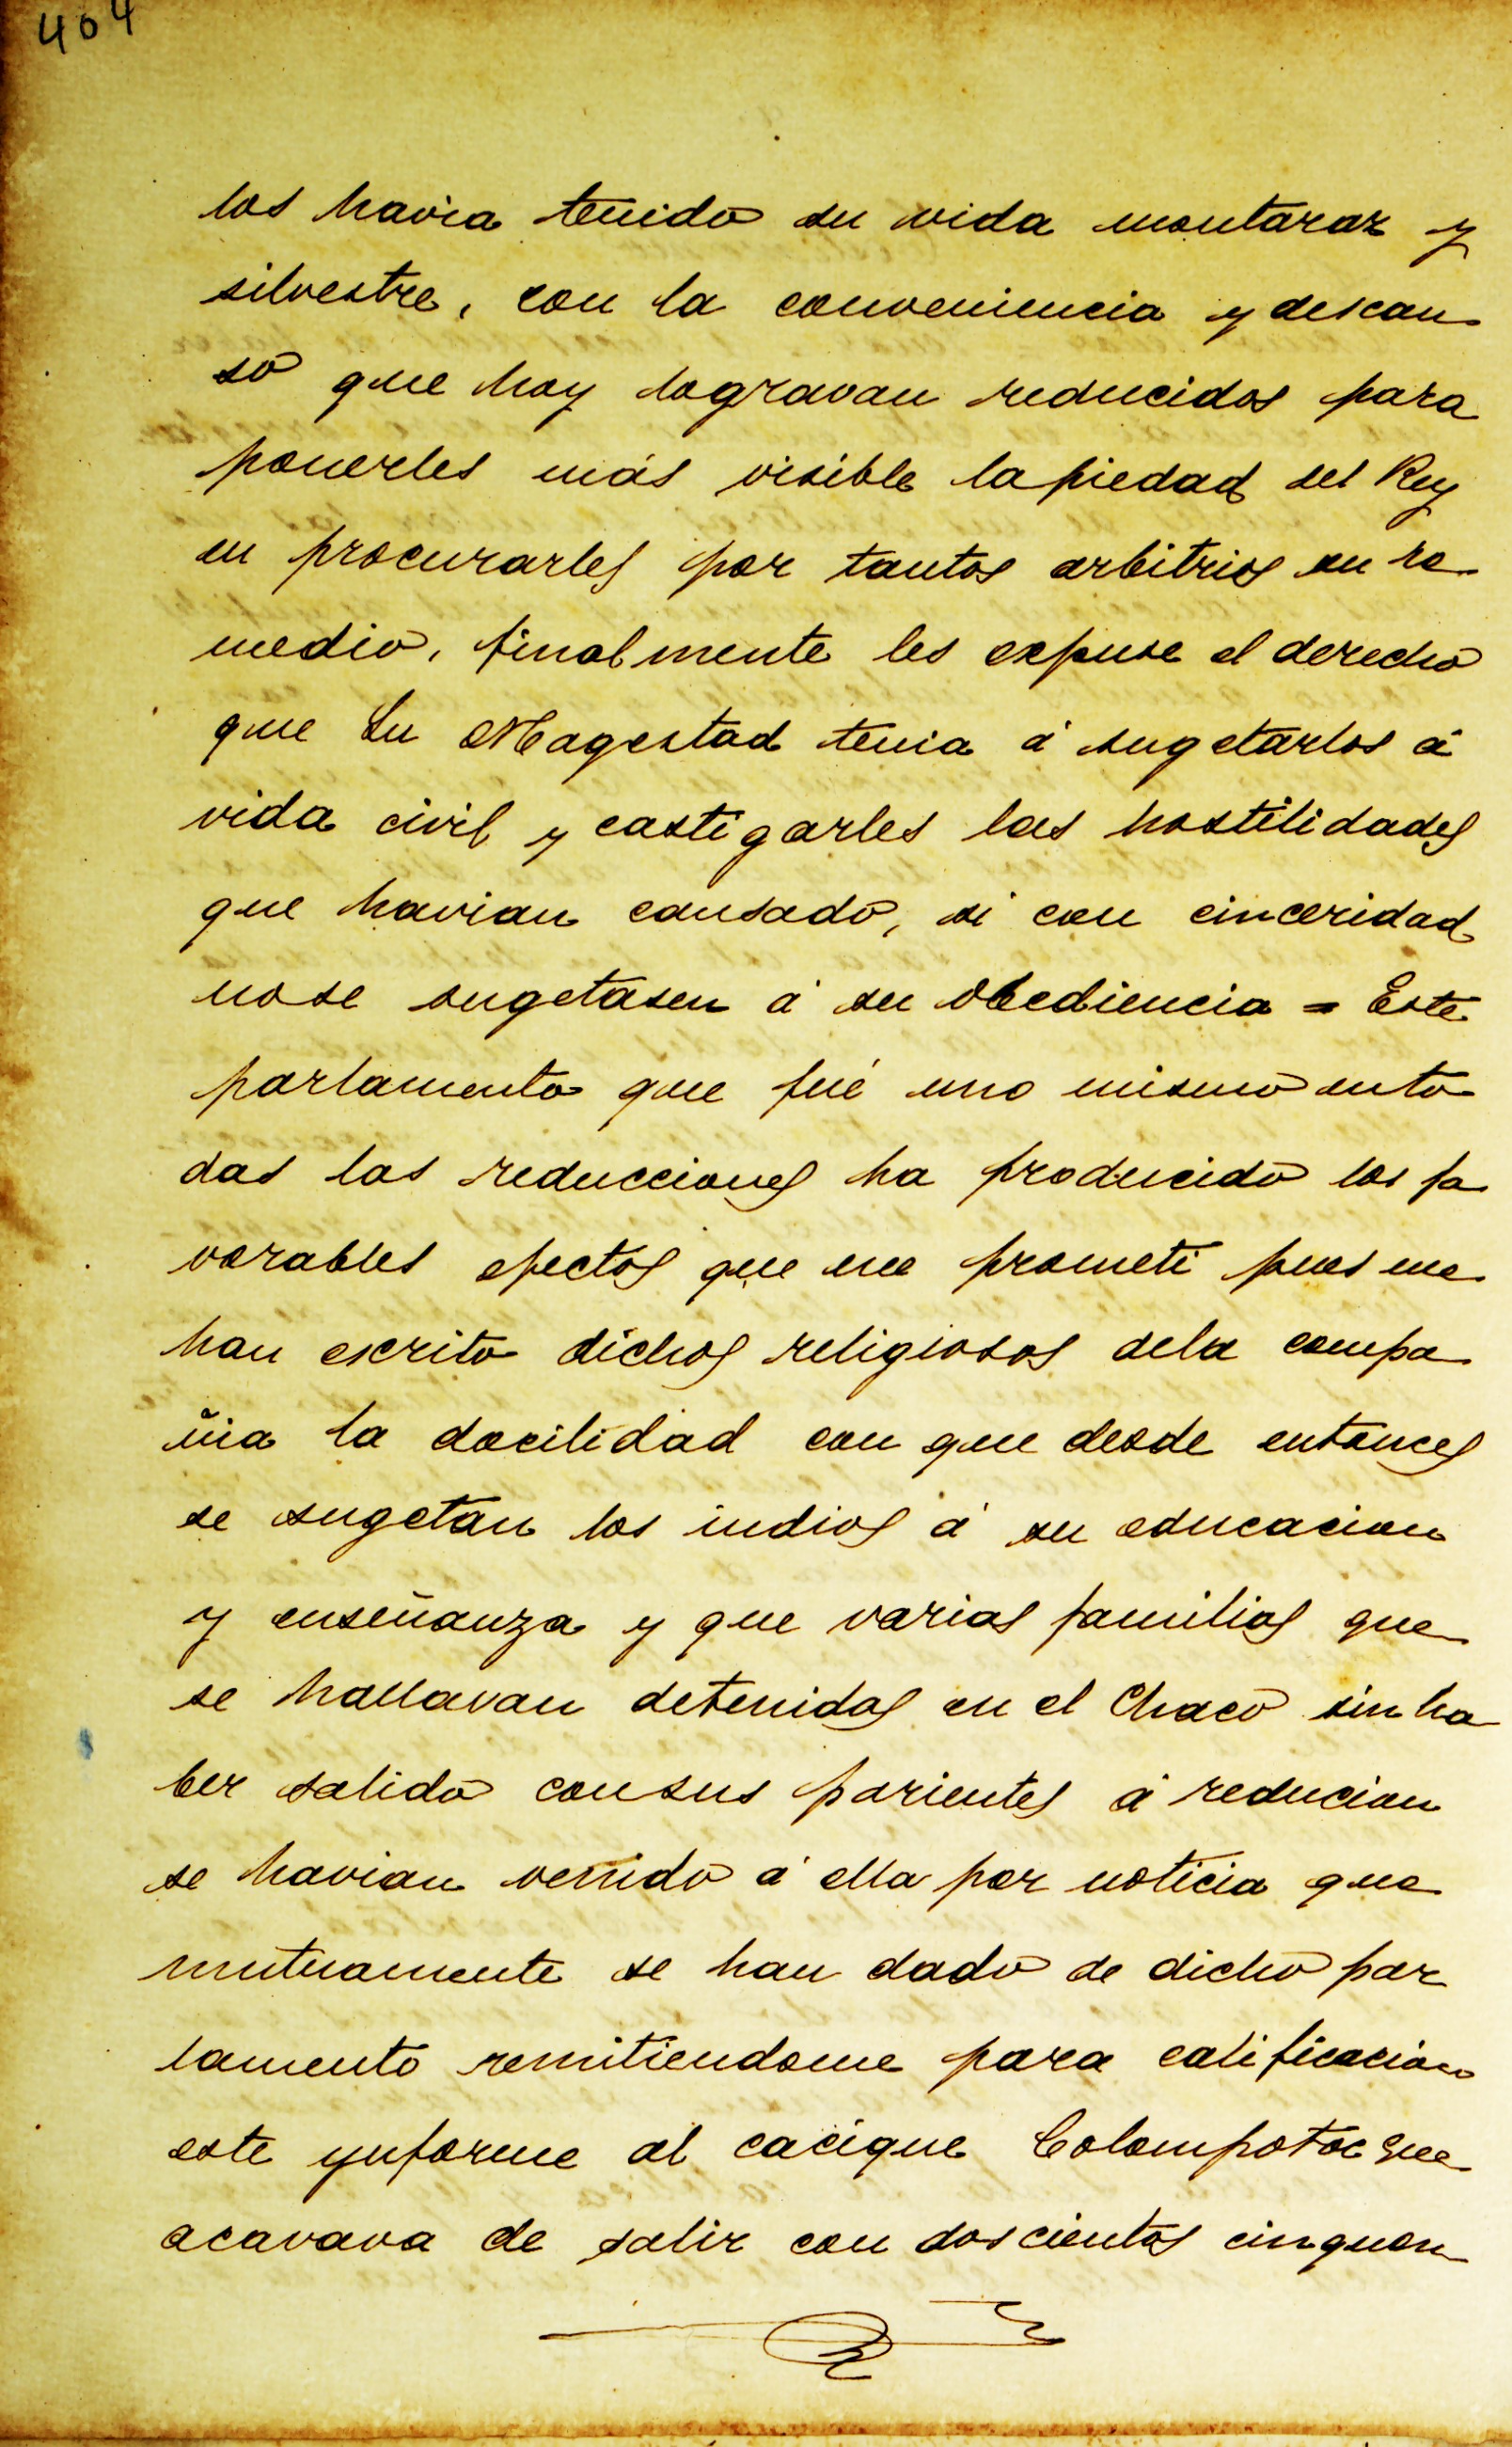 404
los havia tenido su vida montaraz y
silvestre, con la conveniencia y descan
so que hoy logravan reducidos para
ponerles más visible la piedad del Rey
en procurarles por tantos arbitrios su re
medio, finalmente les expuse el derecho
que Su Magestad tenia á sugetarlos á
vida civil y castigarles las hostilidades
que havian causado, si con cinceridad
nose sugetasen á su obediencia = Este
parlamento que fué uno mismo ento
das las reducciones ha producido los fa
vorables efectos que me prometi pues me
han escrito dichos religiosos dela compa
ñia la docilidad con que desde entonces
se sugetan los indios á su educacion
y enseñanza y que varias familias que
se hallavan detenidas en el Chaco sin ha
ber salido consus parientes á reducion
se havian venido á ella por noticia que
mutuamente se han dado de dicho par
lamento remitiendome para calificacion
este ynforme al cacique Colompotoc que
acavava de salir con doscientos cinquen